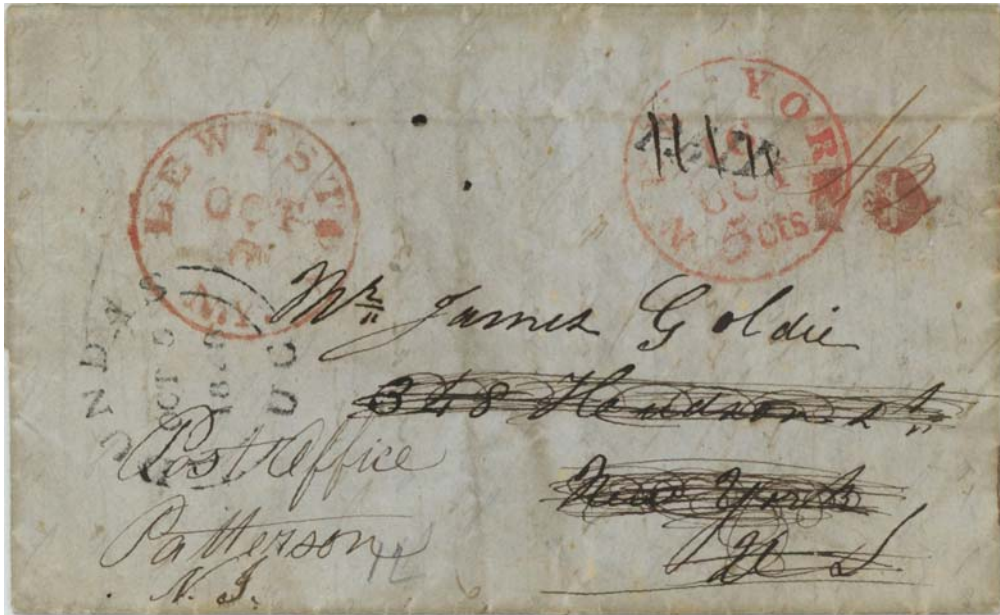 LEWISTO
OCT
N.Y.
YORK
OCT
5 cts
DUNDAS
OCT 9
U.C
Mr. James Goldie
348 Hudson st.
New York
U S
Post Office
Patterson
N. J.